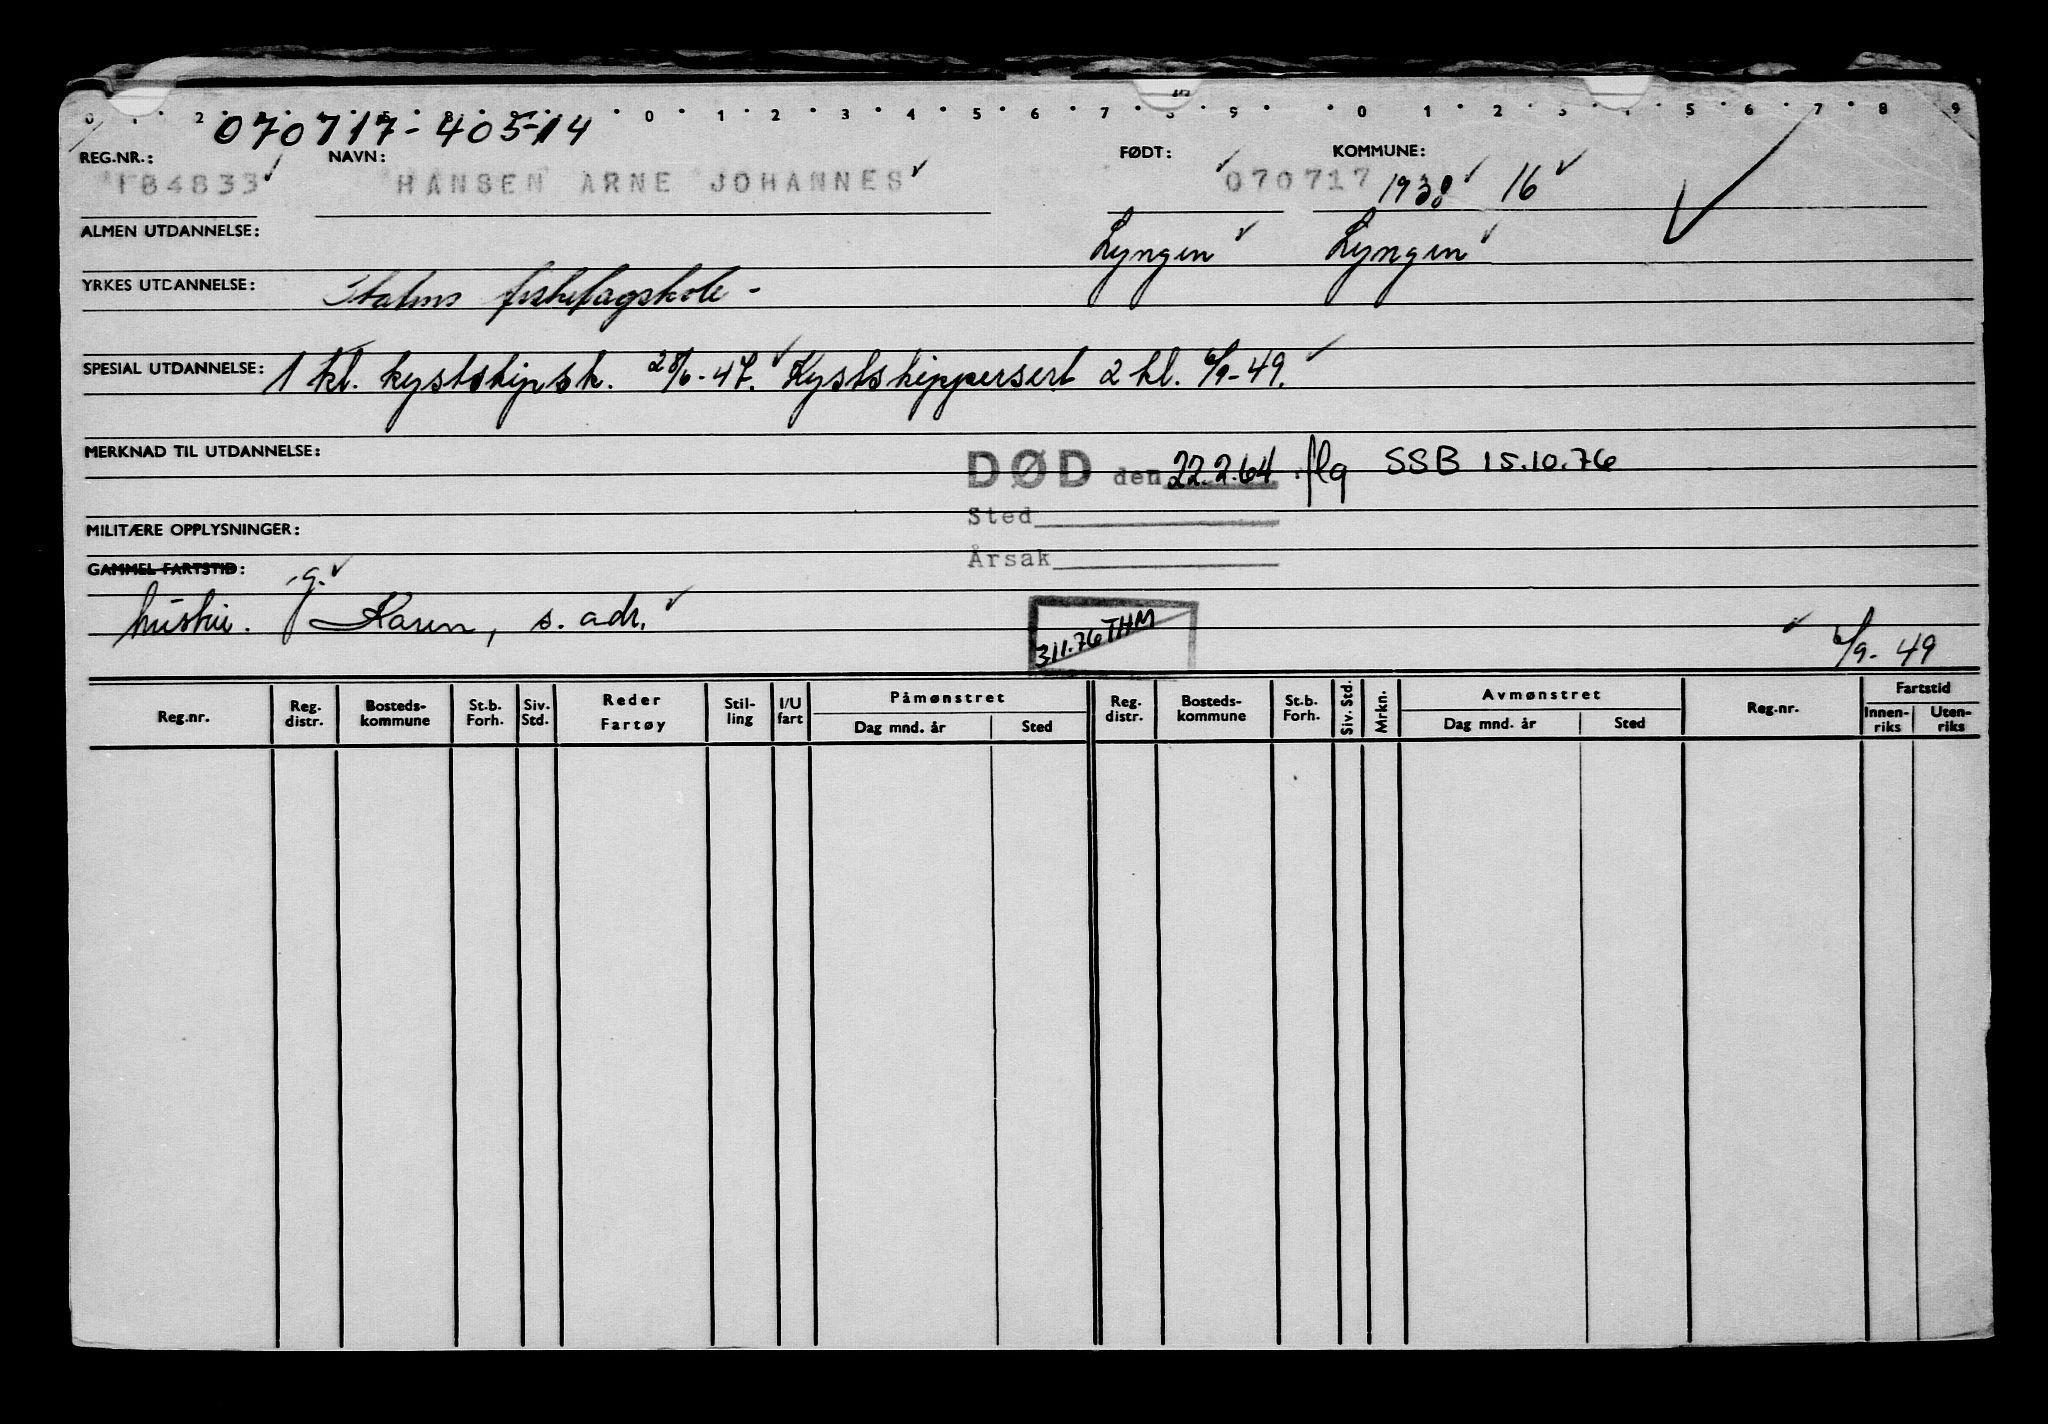 0 1 2 8 0 1 2 3 4 5 6 7 8 9 0 1 2 3 4 5 6 7 8 9
070717-405-14
REG.NR.: NAVN: FØDT: KOMMUNE:
184833 HANSEN ARNE JOHANNES 070717 1938 16
ALMEN UTDANNELSE: Lyngen Lyngen
YRKES UTDANNELSE: Statens fiskefagskole -
SPESIAL UTDANNELSE: 1 kl. kystskipsk. 28/6-47. Kystskippersert 2 kl. 6/9-49.
MERKNAD TIL UTDANNELSE: DØD den 22.2.64 flg SSB 15.10.76
Sted
MILITÆRE OPPLYSNINGER:
Årsak
GAMMEL FARTSTID: g.
hustru. Karen, s. adr.
311.76 THM
6/9-49
Reg.nr. Reg. distr. Bosteds-kommune St.b. Forh. Siv. Std. Reder Fartøy Stil-ling I/U fart Påmønstret Dag mnd. år Sted Reg. distr. Bosteds-kommune St.b. Forh. Siv. Std. Mrkn. Avmønstret Dag mnd. år Sted Reg.nr. Fartstid Innen-riks Uten-riks